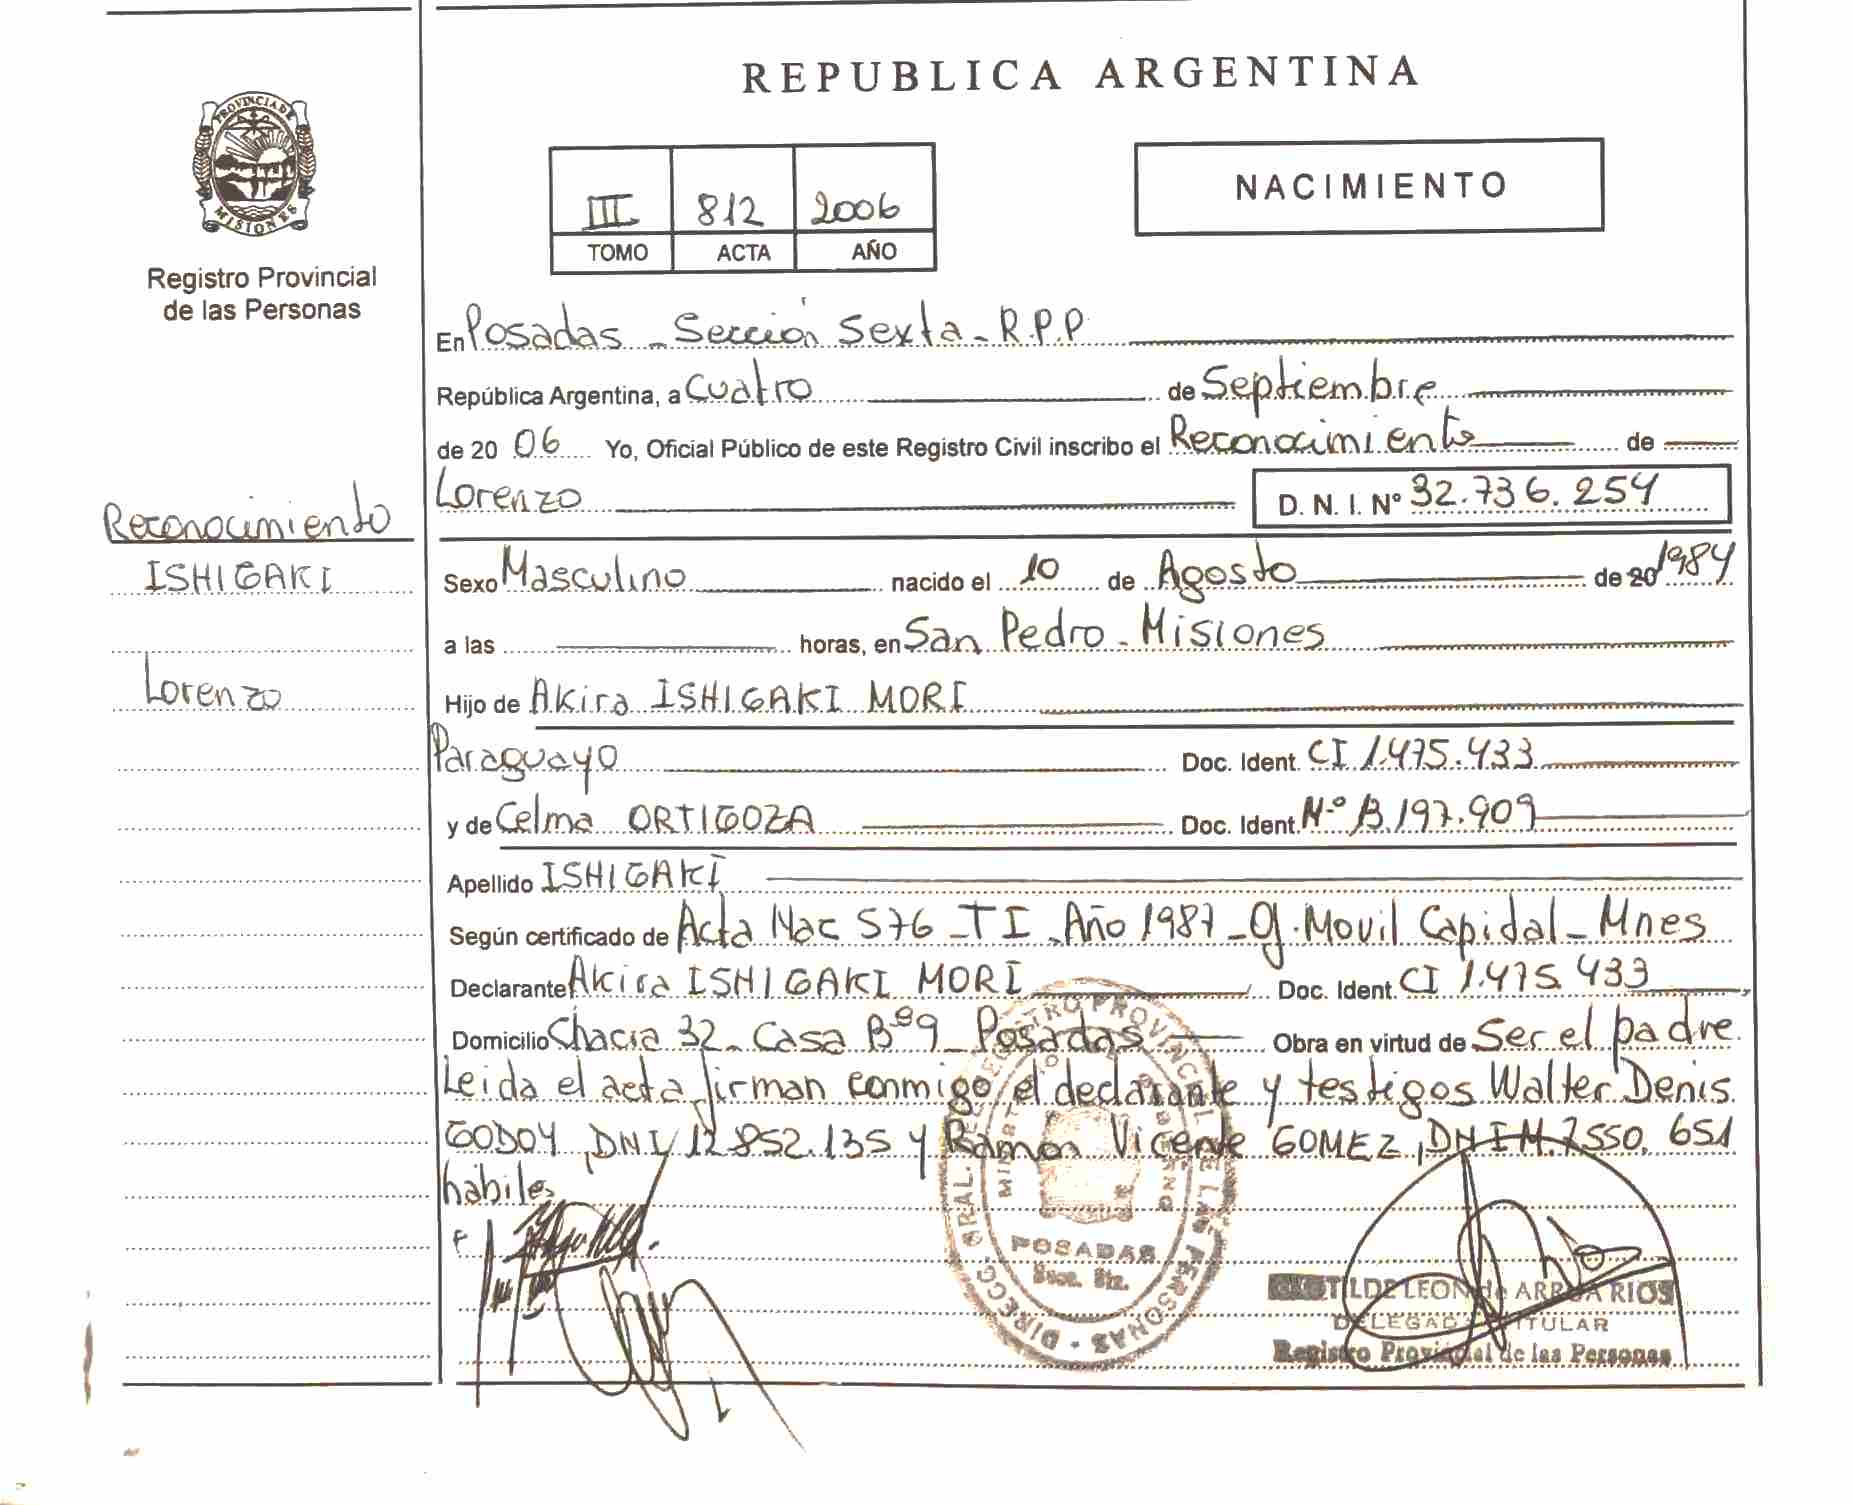 REPUBLICA ARGENTINA
PROVINCIA DE
MISIONES
Registro Provincial
de las Personas
NACIMIENTO
III 812 2006
TOMO ACTA AÑO
En Posadas - Sección Sexta - R.P.P
República Argentina, a Cuatro de Septiembre
de 20 06 Yo, Oficial Público de este Registro Civil inscribo el Reconocimiento de
Lorenzo D. N. I. Nº 32.736.254
Reconocimiento
ISHIGAKI
Lorenzo
Sexo Masculino nacido el 10 de Agosto de 20 1984
a las horas, en San Pedro - Misiones
Hijo de Akira ISHIGAKI MORI
Paraguayo Doc. Ident. CI 1.475.433
y de Celma ORTIGOZA Doc. Ident. Nº B.197.909
Apellido ISHIGAKI
Según certificado de Acta Nac 576 - TI - Año 1987 - Of. Movil Capidal - Mnes
Declarante Akira ISHIGAKI MORI Doc. Ident. CI 1.475.433
Domicilio Chacra 32 - Casa Bº 9 - Posadas Obra en virtud de Ser el padre.
Leida el acta firman conmigo el declarante y testigos Walter Denis
GODOY, DNI 12.852.135 y Ramón Vicente GOMEZ, DNI M.7550.651
habiles
DIRECC. GRAL. REGISTRO PROVINCIAL DE LAS PERSONAS
MINISTERIO DE GOBIERNO
POSADAS
Secc. 6ta.
DE LEON de ARRUA RIOS
DELEGADA TITULAR
Registro Provincial de las Personas